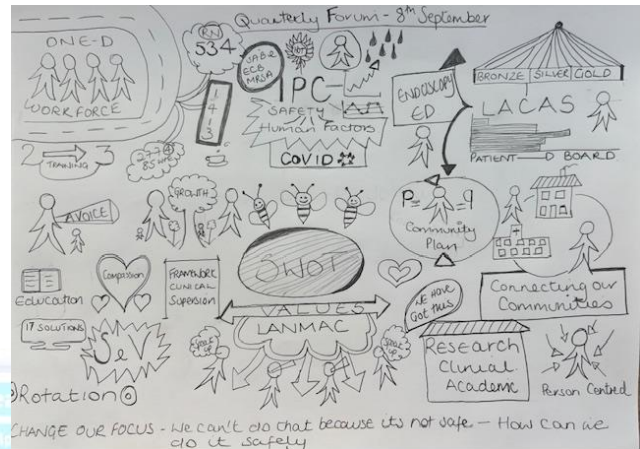 Quarterly Forum - 8th September
ONE-D
WORKFORCE
RN
534
JAB-2
ECB
MRSA
IPC
SAFETY
Human Factors
COVID
1
4
1
3
2 3
TRAINING
85
ENDOSCOPY
ED
BRONZE SILVER GOLD
LACAS
PATIENT BOARD
A VOICE
GROWTH
P= =9
Community
Plan
SWOT
Education
Compassion
FRAMEWORK
CLINICAL
SUPERVISION
VALUES
LANMAC
WE HAVE
GOT THIS
Connecting our
Communities
17 SOLUTIONS
SeV
SPEAK
UP
SPEAK
UP
Research
Clinical
Academic
Person Centred
Rotation
CHANGE OUR FOCUS - We can't do chat because its not safe - How can we
do it safely